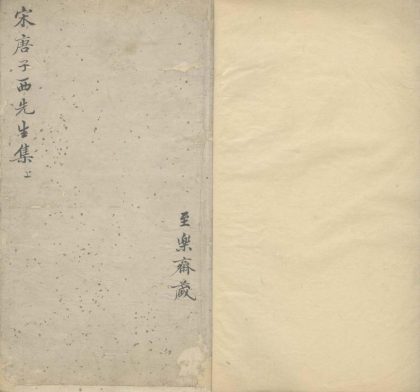 宋唐子西先生集上
至樂齋藏